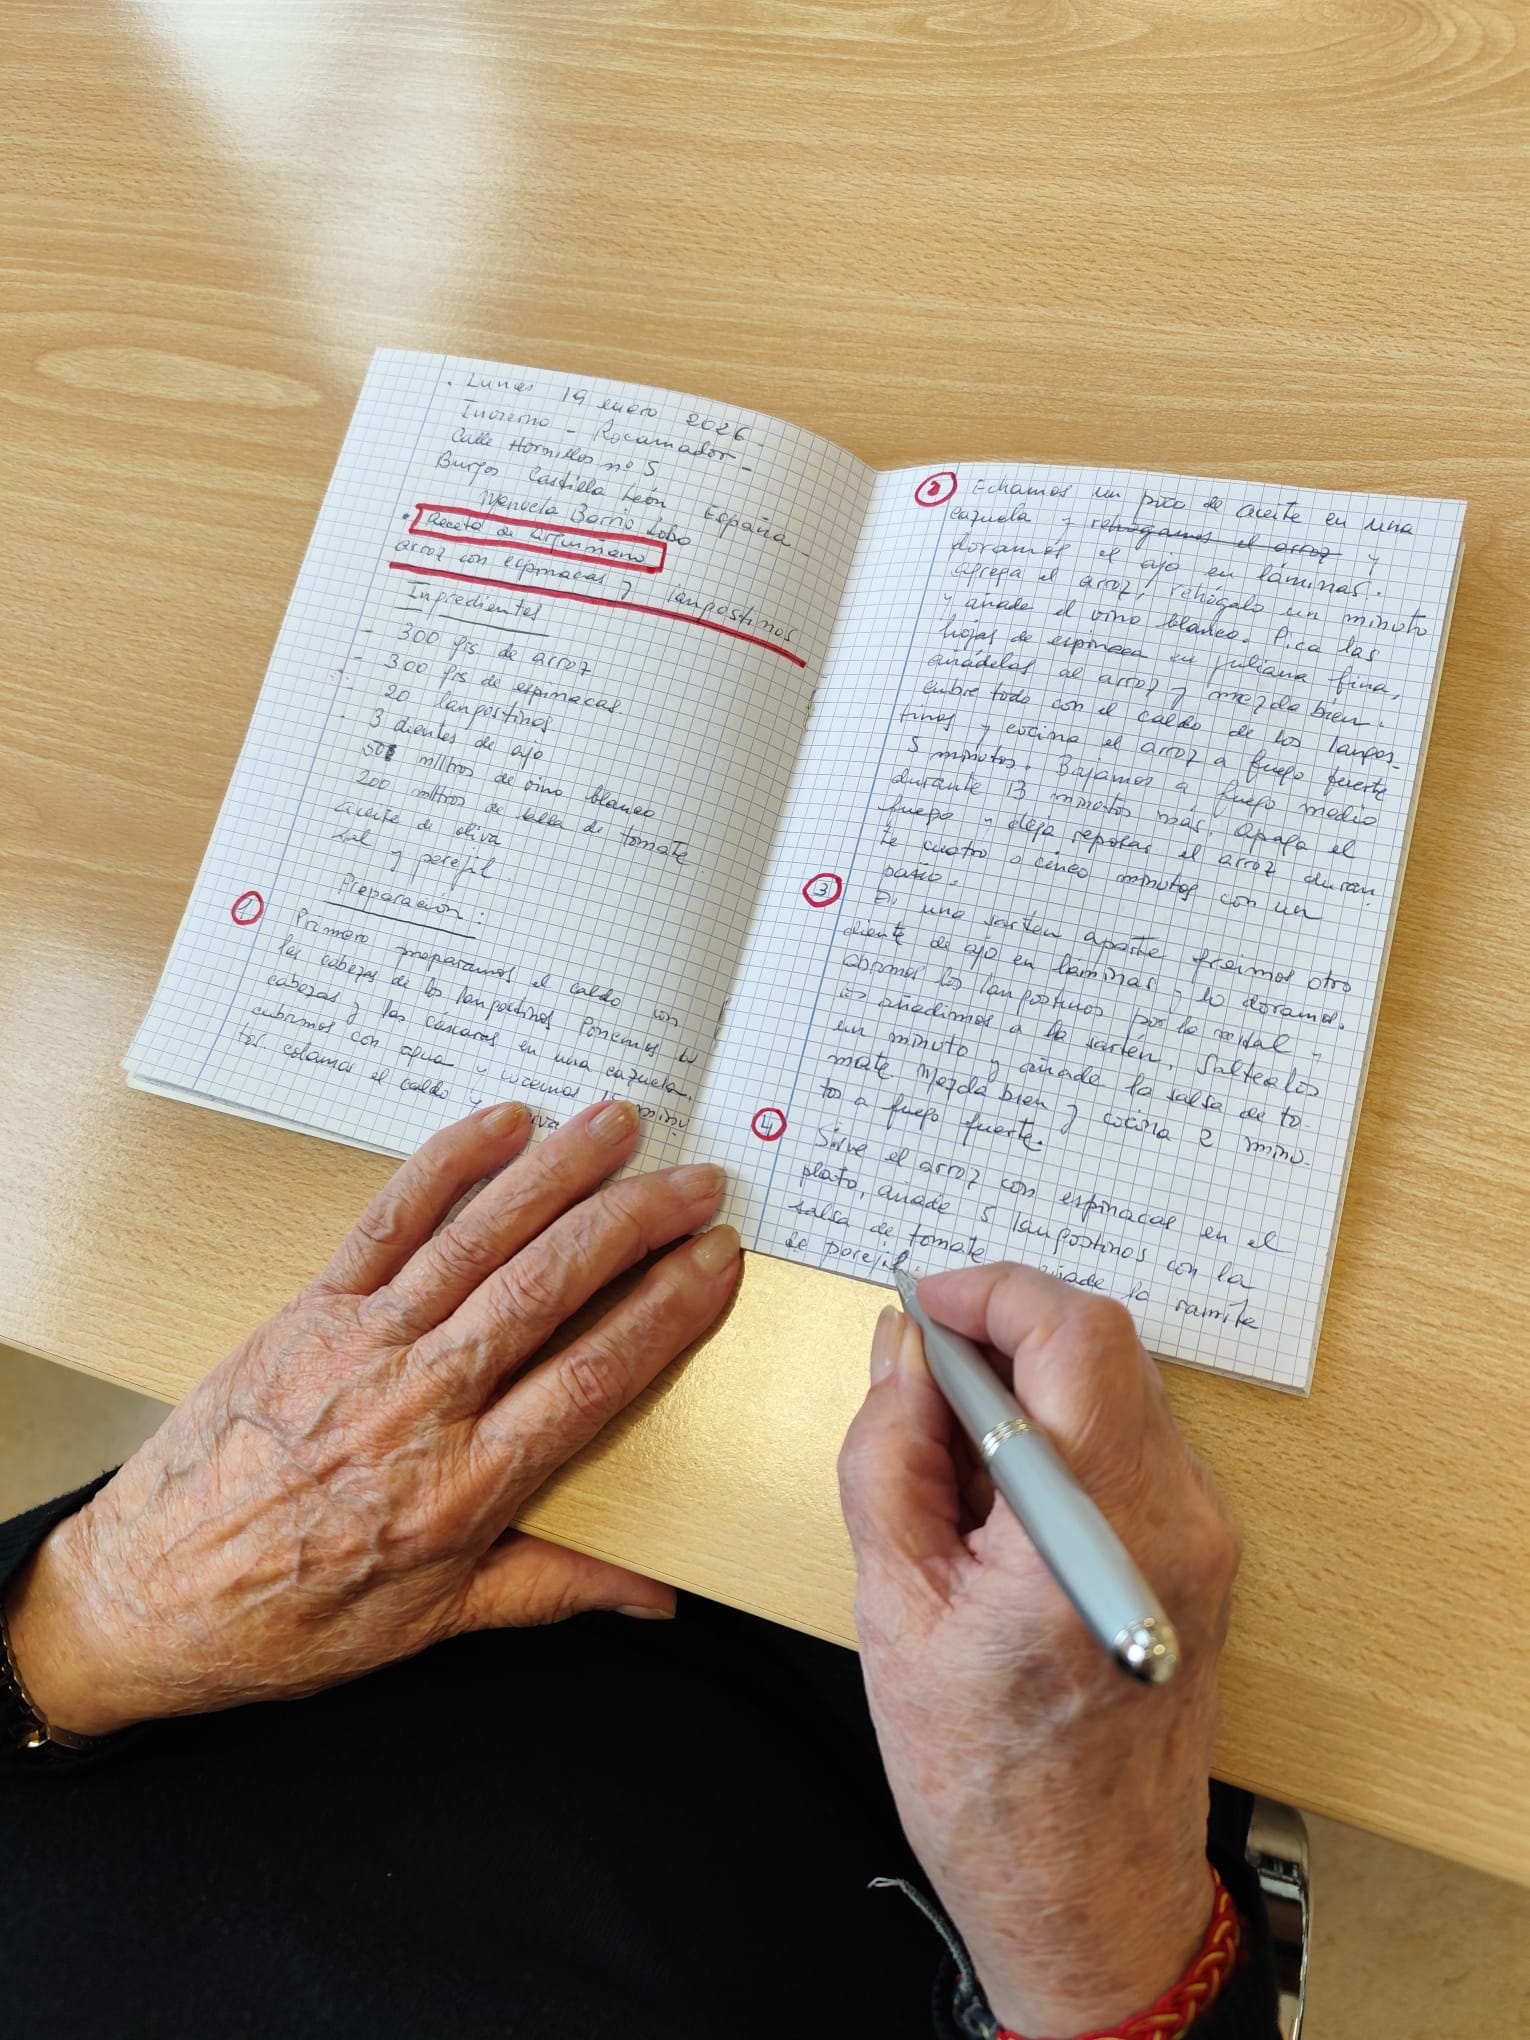 . Lunes 19 enero 2026-
Invierno - Rocamador-
Calle Hornillos nº 5
Burgos Castilla León España-
Manuela Barrio Lobo
. Receta de arguiñano
arroz con espinacas y langostinos
Ingredientes
- 300 grs. de arroz
- 300 grs de espinacas
- 20 langostinos
- 3 dientes de ajo
mlltros de vino blanco
200 mlltros de salsa de tomate
aceite de oliva
sal y perejil.
Preparación:
1 Primero preparamos el caldo con
las cabezas de los langostinos Ponemos las
cabezas y las cáscaras en una cazuela,
cubrimos con agua y cocemos 15 minu
tos. colamos el caldo y
2 Echamos un poco de aceite en una
cazuela y rehogamos el arroz y
doramos el ajo en láminas.
agrega el arroz, rehógalo un minuto
y añade el vino blanco. Pica las
hojas de espinaca en juliana fina,
añádelas al arroz y mezcla bien.
cubre todo con el caldo de los langos-
tinos y cocina el arroz a fuego fuerte
5 minutos. Bajamos a fuego medio
durante 13 minutos mas. apaga el
fuego y deja reposar el arroz duran
te cuatro o cinco minutos con un
paño.
3 En una sarten aparte freimos otro
diente de ajo en láminas y lo doramos.
abrimos los langostinos por la mitad y
los añadimos a la sartén, Saltealos
un minuto y añade la salsa de to-
mate Mezcla bien y cocina 2 minu-
tos a fuego fuerte.
4 Sirve el arroz con espinacas en el
plato, añade 5 langostinos con la
salsa de tomate añade la ramita
de perejil.